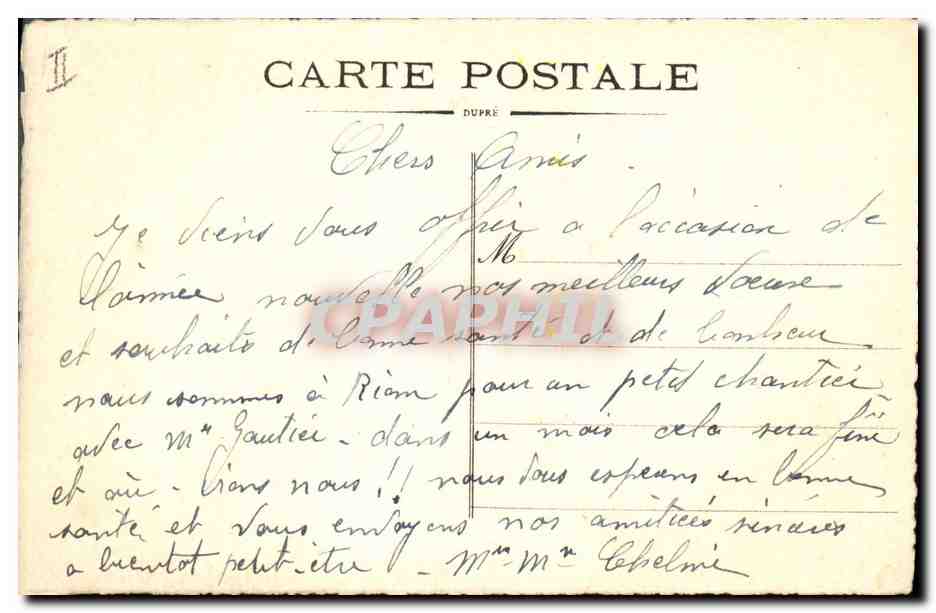 II
CARTE POSTALE
DUPRÉ
Chers Amis.
Je viens vous offrir a l'occasion de
M
l'année nouvelle nos meilleurs voeux
CPAPHIL
et souhaits de bonne santé et de bonheur
nous sommes à Riom pour un petit chantier
avec Mr Gautier - dans un mois cela sera fini
et où - irons nous !! nous vous espérons en bonne
santé et vous envoyons nos amitiées sincères
a bientot petit-etre - Mr Mme